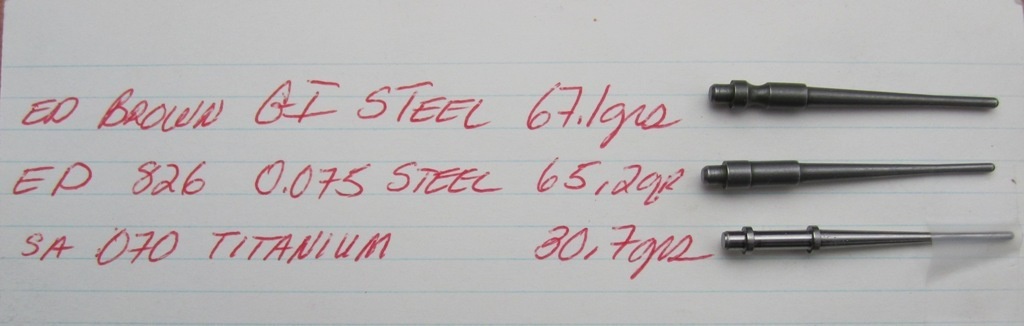 ED BROWN GI STEEL 67.1grs
ED 826 0.075 STEEL 65,2gr
SA 070 TITANIUM 30,7grs